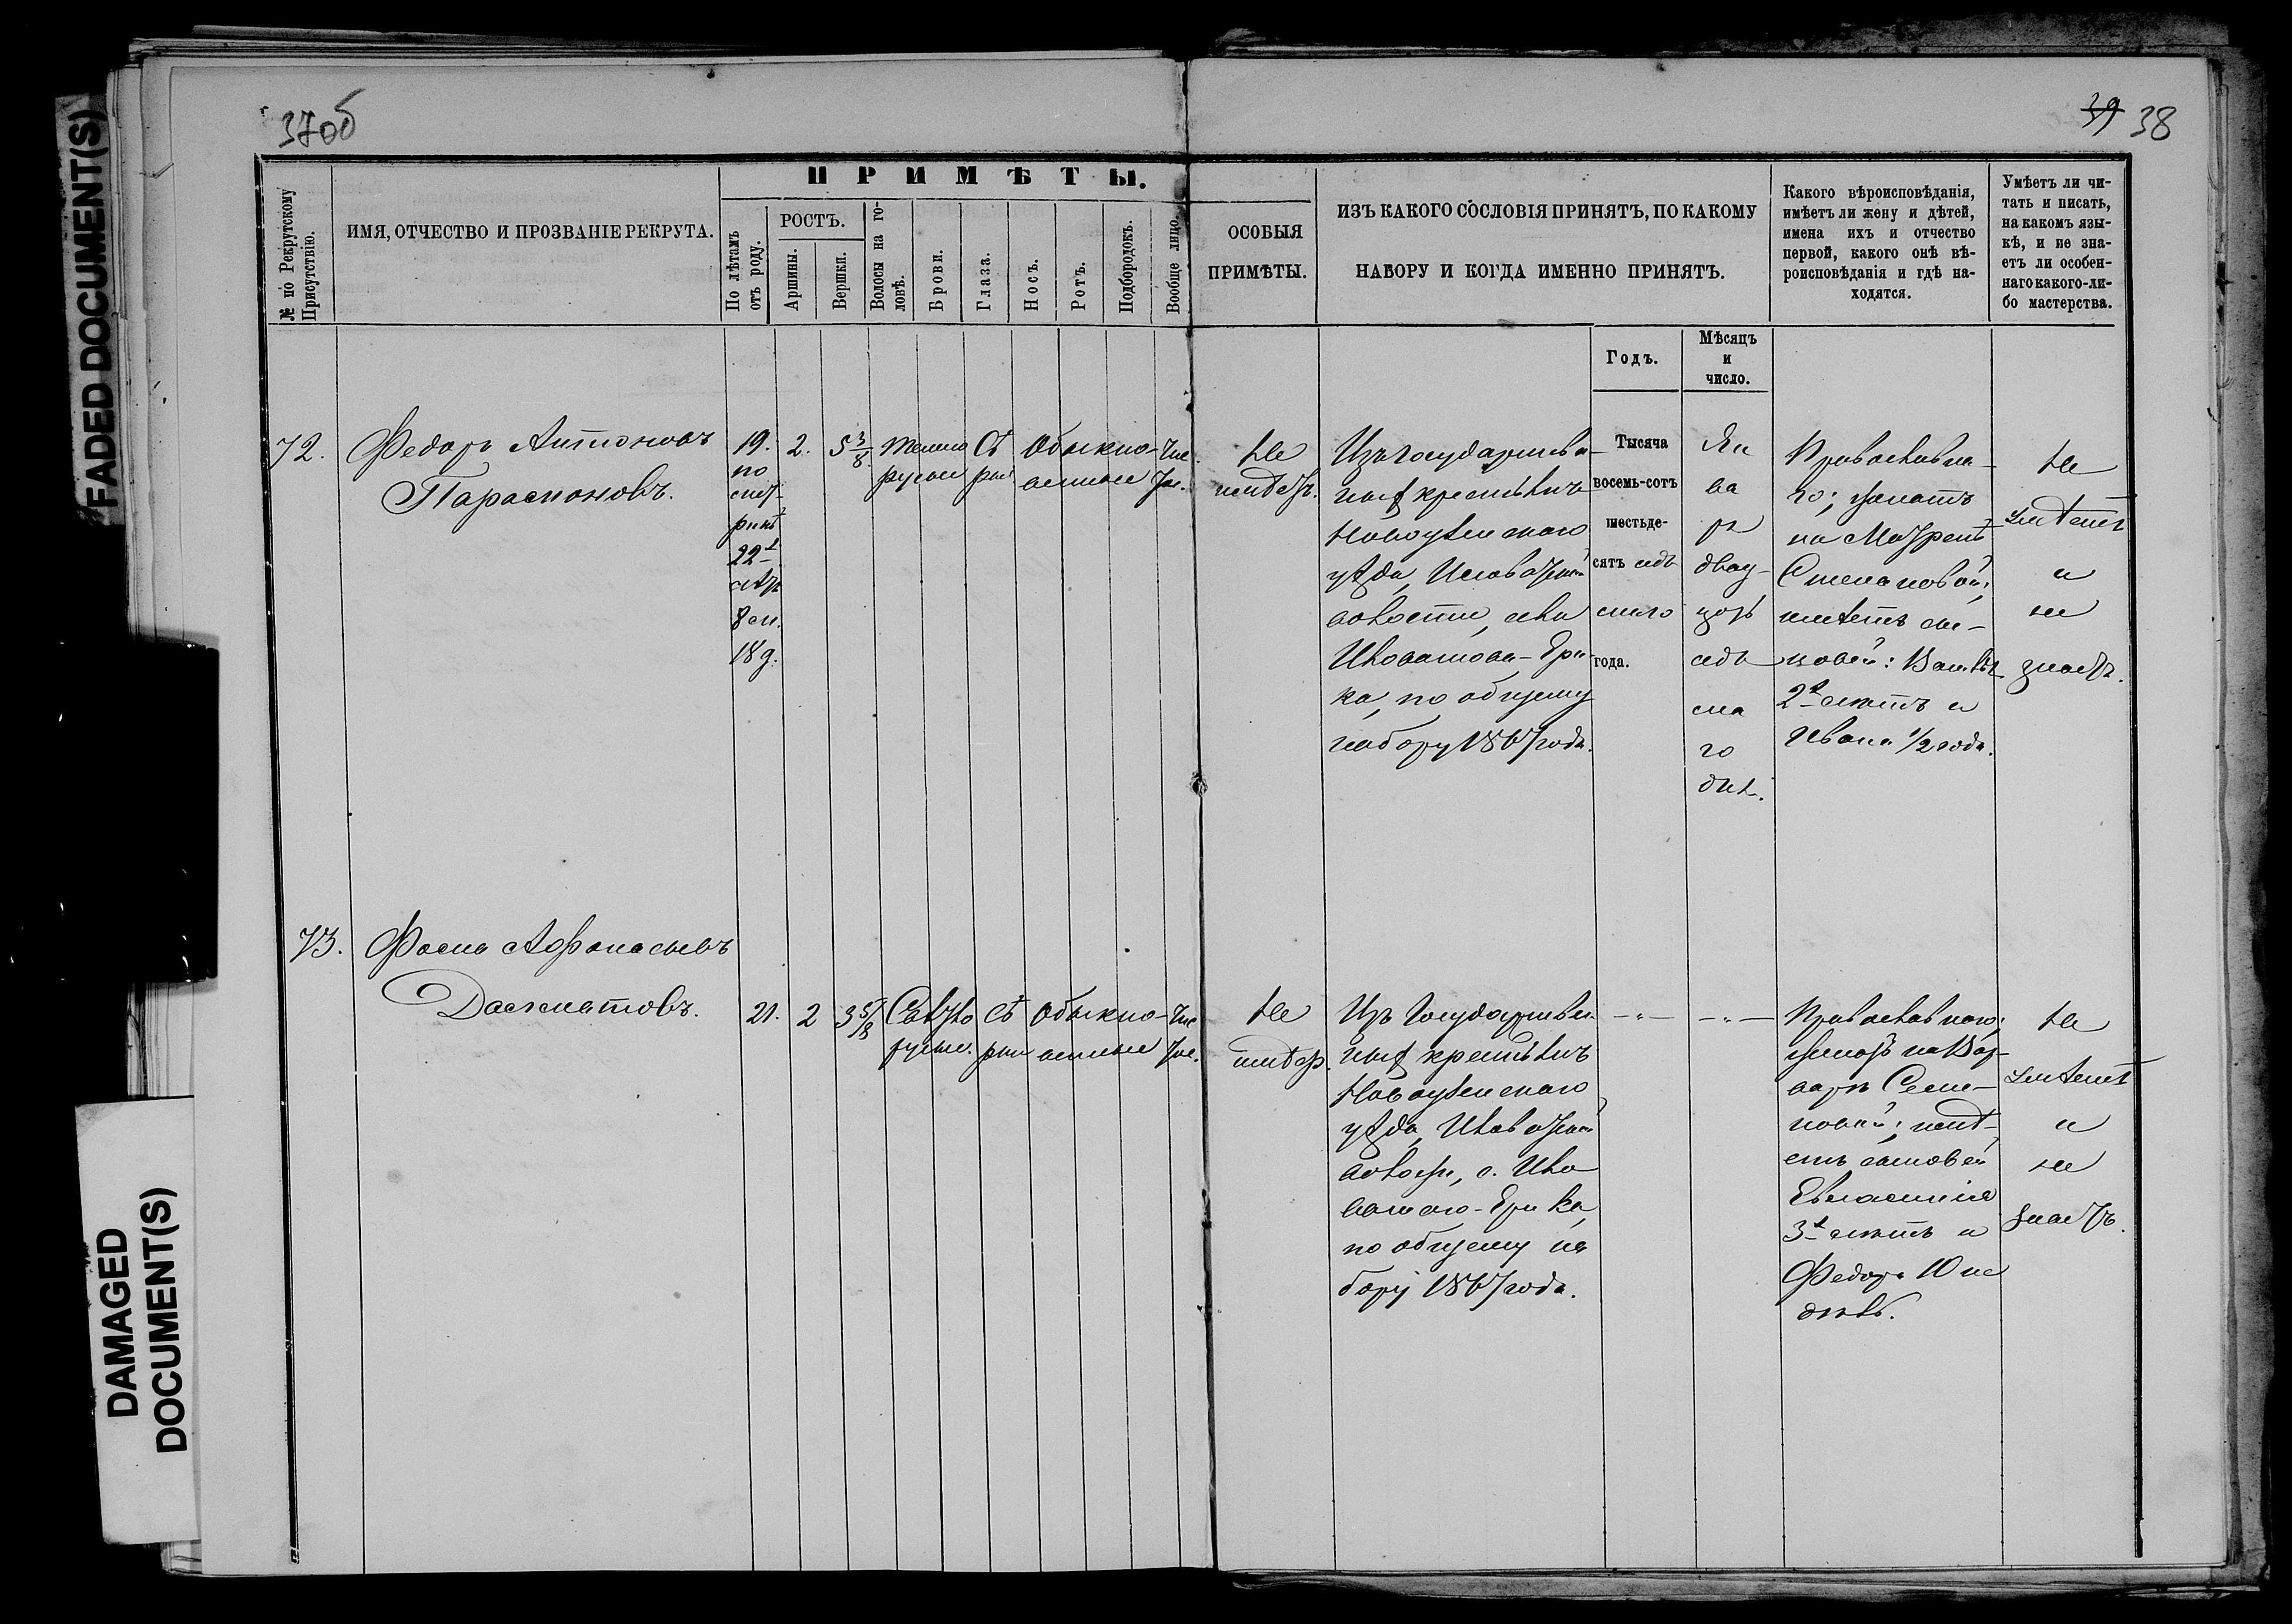 FADED DOCUMENT(S)
DAMAGED
DOCUMENT(S)
37об
39 38
№ по Рекрутскому
Присутствію.
ИМЯ, ОТЧЕСТВО И ПРОЗВАНІЕ РЕКРУТА.
ПРИМѢТЫ.
По лѣтамъ
отъ роду.
РОСТЪ.
Аршины.
Вершки.
Волосы на го-
ловѣ.
Брови.
Глаза.
Носъ.
Ротъ.
Подбородокъ.
Вообще лицо.
ОСОБЫЯ
ПРИМѢТЫ.
ИЗЪ КАКОГО СОСЛОВІЯ ПРИНЯТЪ, ПО КАКОМУ
НАБОРУ И КОГДА ИМЕННО ПРИНЯТЪ.
Какого вѣроисповѣданія,
имѣетъ ли жену и дѣтей,
имена ихъ и отчество
первой, какого онѣ вѣ-
роисповѣданія и гдѣ на-
ходятся.
Умѣетъ ли чи-
тать и писать,
на какомъ язы-
кѣ, и не зна-
етъ ли особен-
наго какого-ли-
бо мастерства.
Годъ.
Мѣсяцъ
и
число.
72.
Федоръ Антоновъ
Парамоновъ.
19.
по
мет-
рикѣ
22-
лѣтъ
8 м.
18 д.
2.
5 3/8.
Темно
русые
Сѣ
рые
Обыкно-
венные
Чис
тое.
Не
имѣетъ.
Изъ Государствен-
ныхъ крестьянъ
Новоузенскаго
уѣзда, Иловатской
волости, села
Иловатова-Ери-
ка, по общему
набору 1867 года.
Тысяча
восемь-сотъ
шестьде-
сятъ седь
маго
года.
Ян
ва
ря
двад-
цать
седь
ма
го
дня.
Православна-
го; женатъ
на Матренѣ
Степановой;
имѣетъ сы-
новей:
2-лѣтъ и
Ивана 1/2 года.
Не
умѣетъ
и
не
знаетъ.
73.
Фома Афанасьевъ
Далматовъ.
21.
2
3 5/8
Свѣтло
русые.
Сѣ
рые
Обыкно-
венные
Чис
тое.
Не
имѣетъ.
Изъ Государствен-
ныхъ крестьянъ
Новоузенскаго
уѣзда, Иловатской
волости, с. Ило
ватаго-Ерика,
по общему на
бору 1867 года.
-„-
-„-
Православнаго;
женатъ на Вар-
варѣ Семе-
новой; имѣ-
етъ сыновей
3-лѣтъ и
Федора 10 не
дѣль.
Не
умѣетъ
и
не
знаетъ.